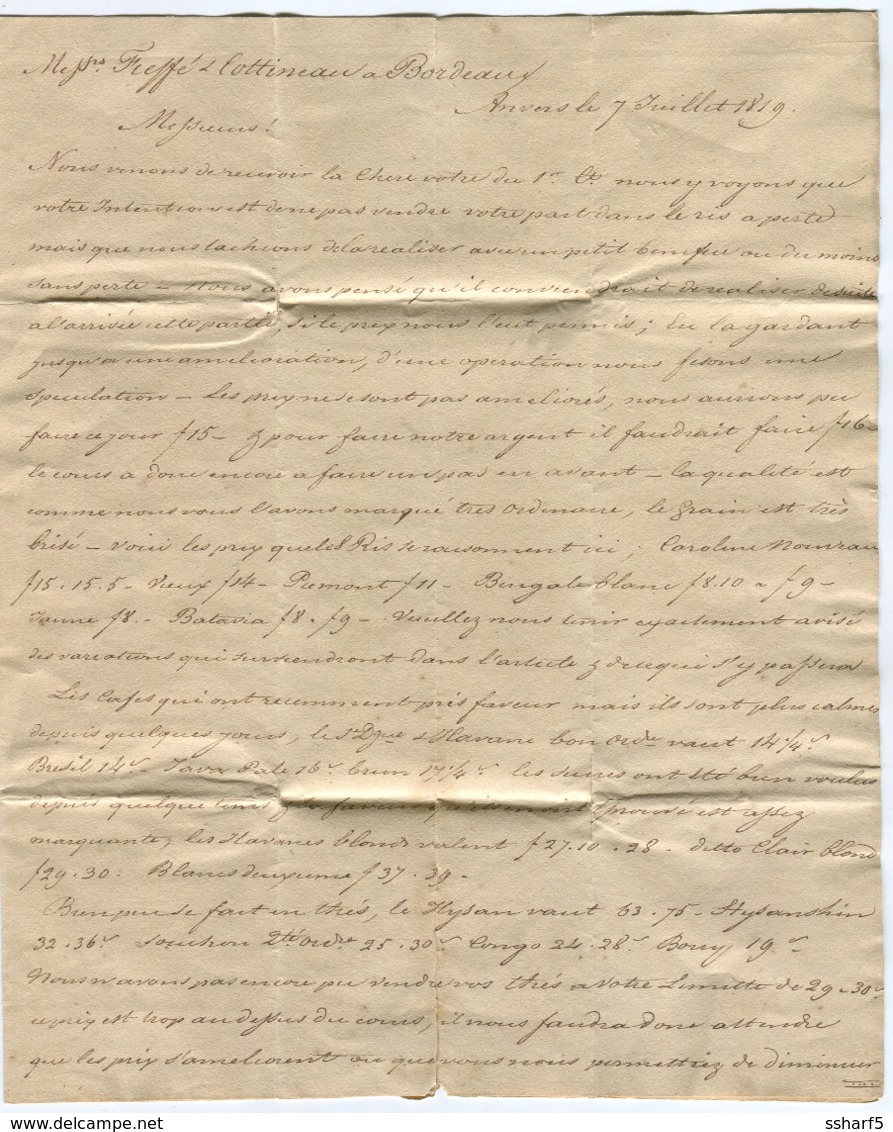 Messrs. Fieffé & Cottineau a Bordeaux
Anvers le 7 Juillet 1819.
Messieurs!
Nous venons de recevoir la Chere votre du 1er Ct. nous y voyons que
votre Intention est de ne pas vendre votre part dans le ris a perte
mais que nous tachions de la realiser avec un petit benefice ou du moins
sans perte – Nous avons pensé qu'il conviendrait de realiser de suite
a l'arrivée cette partie, si le prix nous l'eut permis; en la gardant
jusqu'a une amelioration, d'une operation nous fesons une
speculation – Les prix ne se sont pas ameliorés, nous aurions pu
faire ce jour f15 – & pour faire notre argent il faudrait faire f16 –
le cours a donc encore a faire un pas en avant – la qualité est
comme nous vous l'avons marqué tres ordinaire, le grain est très
brisé – voici les prix que les Ris se raisonnent ici; Caroline Nouveau
f15.15.5 – Vieux f14 – Piemont f11 – Bengale blanc f8.10 a f9 –
Jaune f8. – Batavia f8 a f9 – Veuillez nous tenir exactement avisé
des variations qui surviendront dans l'article & de ce qui s'y passera
Les Cafes qui ont recemment pris faveur mais ils sont plus calmes
depuis quelques jours, le St Dgue & Havane bon Ordre vaut 14 1/4
Bresil 14 – Java Pale 16 brun 17 1/4 les sucres ont été bien voulus
depuis quelque tems & la faveur qu'ils ont éprouvé est assez
marquante, les Havanes blonds valent f27.10 . 28 – ditto Clair blond
f29 . 30 . Blancs deuxieme f37 . 39 –
Bien peu se fait en thés, le Hysan vaut 63 . 75 – Hysanskin
32 . 36 Souchon Ordre 25 . 30 Congo 24 . 28 Bouy 19
Nous n'avons pas encore pu vendre vos thés a votre Limitte de 29 a 30
ce prix est trop au dessus du cours, il nous faudra donc attendre
que les prix s'ameliorent ou que vous nous permettiez de diminuer
www.delcampe.net
ssharf5